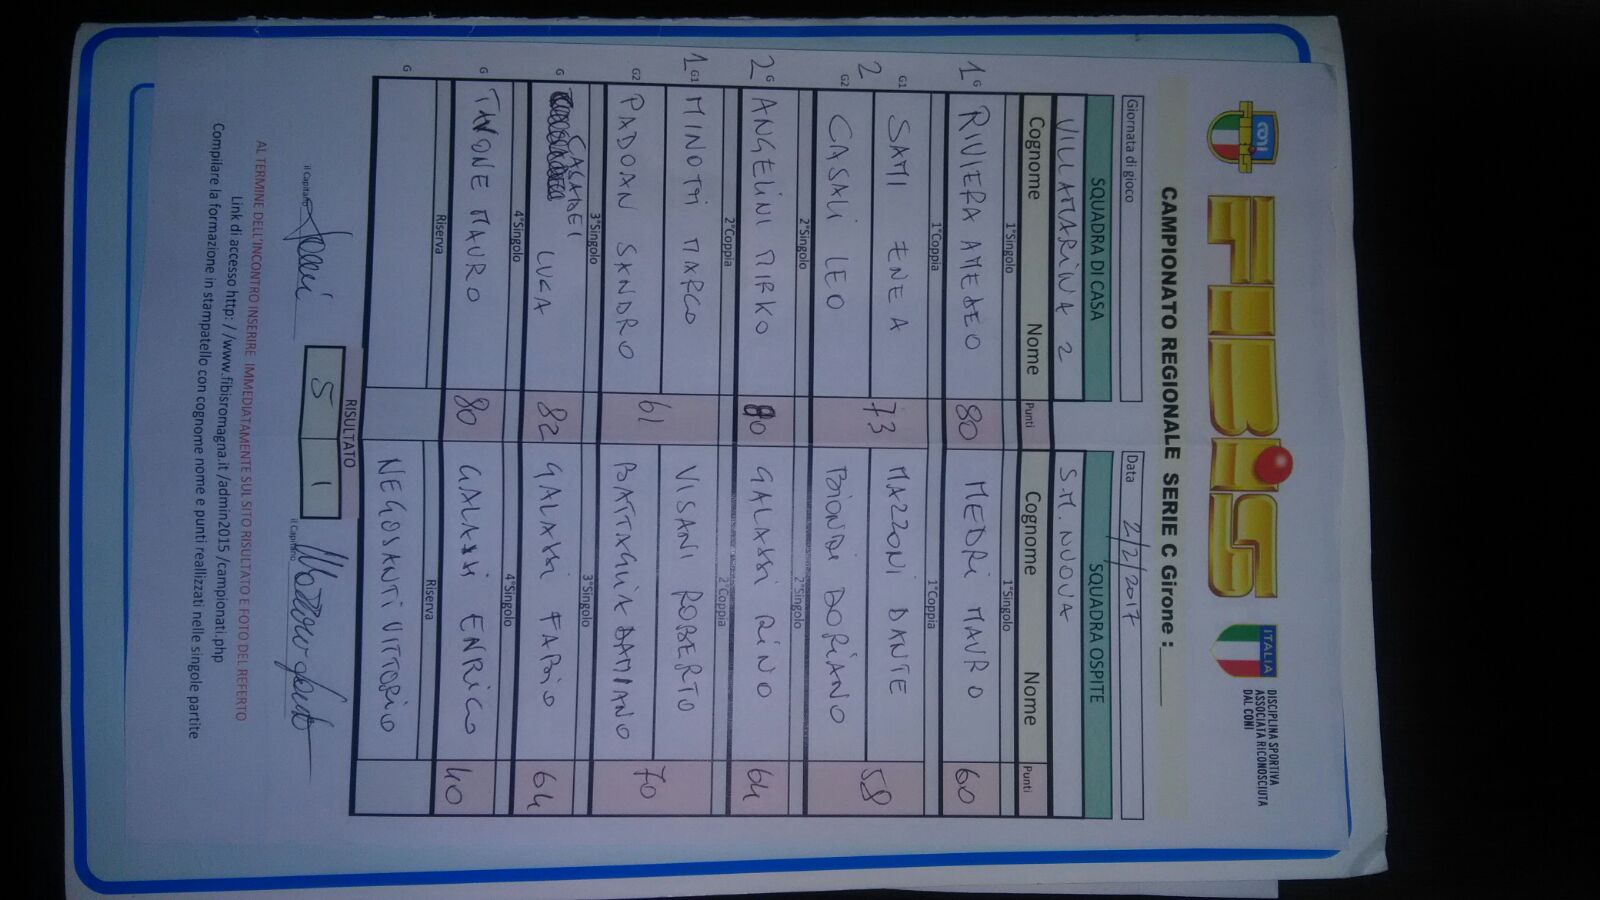 CONI
FIBiS
ITALIA
DISCIPLINA SPORTIVA
ASSOCIATA RICONOSCIUTA
DAL CONI
CAMPIONATO REGIONALE SERIE C Girone :
Giornata di gioco
Data 2/2/2017
SQUADRA DI CASA SQUADRA OSPITE
VILLAMARINA 2 S.M. NUOVA
Cognome Nome Punti Cognome Nome Punti
1°Singolo 1°Singolo
1 G RIVIERA AMEDEO 80 MEDRI MAURO 60
1°Coppia 1°Coppia
G1 SAMI ENEA 73 MAZZONI DANTE 58
2
G2 CASALI LEO BIONDI DORIANO
2°Singolo 2°Singolo
2 G ANGELINI MIRKO 80 GALASSI RINO 64
2°Coppia 2°Coppia
1 G1 MINOTTI MARCO 61 VISANI ROBERTO 70
G2 PADOAN SANDRO BATTAGLIA DAMIANO
3°Singolo 3°Singolo
G CASADEI LUCA 82 GALASSI FABIO 64
4°Singolo 4°Singolo
G TAVONE MAURO 80 GALASSI ENRICO 40
Riserva Riserva
G NEGOSANTI VITTORIO
RISULTATO
il Capitano 5 1 il Capitano
AL TERMINE DELL'INCONTRO INSERIRE IMMEDIATAMENTE SUL SITO RISULTATO E FOTO DEL REFERTO
Link di accesso http: / /www.fibisromagna.it /admin2015 /campionati.php
Compilare la formazione in stampatello con cognome nome e punti realizzati nelle singole partite